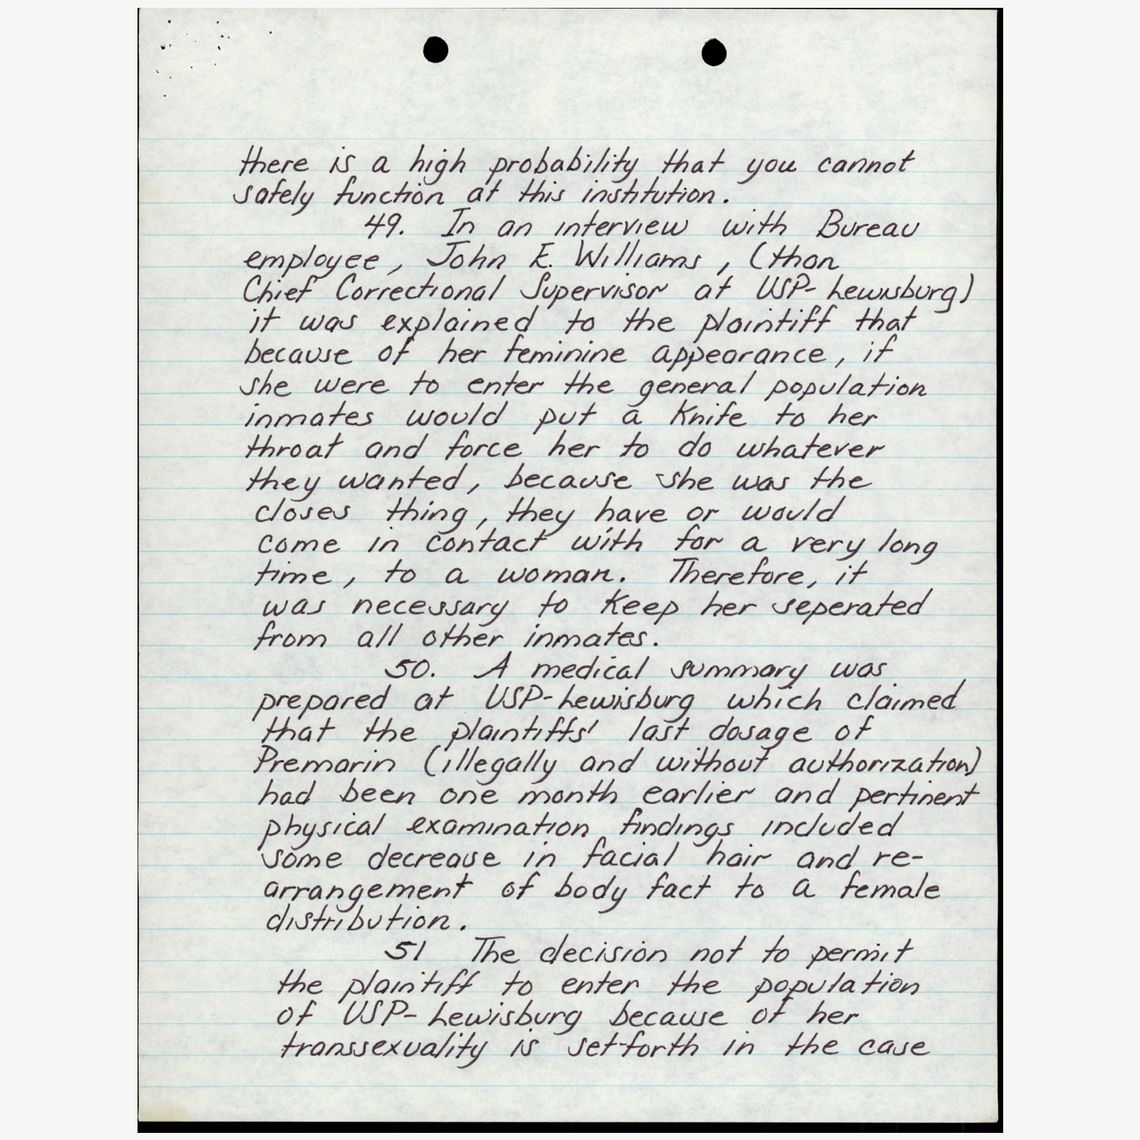 there is a high probability that you cannot
safely function at this institution.
49. In an interview with Bureau
employee, John E. Williams, (than
Chief Correctional Supervisor at USP-Lewisburg)
it was explained to the plaintiff that
because of her feminine appearance, if
she were to enter the general population
inmates would put a knife to her
throat and force her to do whatever
they wanted, because she was the
closes thing, they have or would
come in contact with for a very long
time, to a woman. Therefore, it
was necessary to keep her seperated
from all other inmates.
50. A medical summary was
prepared at USP-Lewisburg which claimed
that the plaintiffs' last dosage of
Premarin (illegally and without authorization)
had been one month earlier and pertinent
physical examination findings included
some decrease in facial hair and re-
arrangement of body fact to a female
distribution.
51 The decision not to permit
the plaintiff to enter the population
of USP-Lewisburg because of her
transsexuality is set-forth in the case